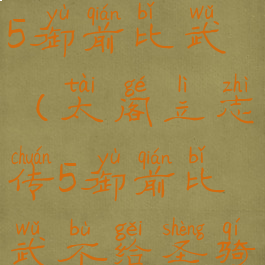 yù qián bǐ wǔ
5御前比武
tài gé lì zhì
(太阁立志
chuán yù qián bǐ
传5御前比
wǔ bù gěi shèng qí
武不给圣骑